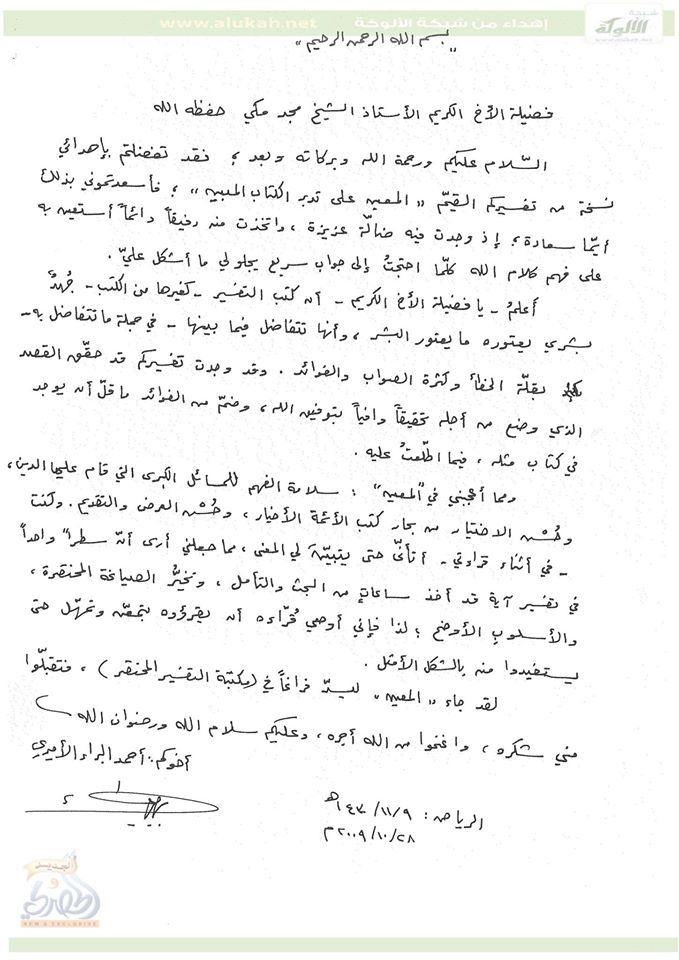 إهداء من شبكة الألوكة www.alukah.net
شبكة الألوكة
www.alukah.net
"بسم الله الرحمن الرحيم"
فضيلة الأخ الكريم الأستاذ الشيخ مجد مكي حفظه الله
السّلام عليكم ورحمة الله وبركاته وبعد؛ فقد تفضلتم بإهدائي
نسخة من تفسيركم القيّم "المعين على تدبر الكتاب المبين"، فأسعدتموني بذلك
أيّما سعادة؛ إذ وجدت فيه ضالّة عزيزة، واتخذت منه رفيقاً دائماً أستعين به
على فهم كلام الله كلّما احتجتُ إلى جواب سريع يجلو لي ما أشكل عليّ.
أعلمُ - يا فضيلة الأخ الكريم - أن كتب التفسير - كغيرها من الكتب - جُهدٌ
بشري يعتوره ما يعتور البشر، وأنها تتفاضل فيما بينها - في جملة ما تتفاضل به -
بقلّة الخطأ وكثرة الصواب والفوائد. وقد وجدت تفسيركم قد حقّق القصد
الذي وضع من أجله تحقيقاً وافياً بتوفيق الله، وضمّ من الفوائد ما قلّ أن يوجد
في كتاب مثله، فيما اطّلعتُ عليه.
ومما أعجبني في "المعين": سلامة الفهم للمسائل الكبرى التي قام عليها الدين،
وحُسْن الاختيار من بحار كتب الأئمة الأخيار، وحُسْن العرض والتقديم. وكنت
- في أثناء قراءتي - أتأنّى حتى يتبيّنَ لي المعنى، مما جعلني أرى أنّ سطراً واحداً
في تفسير آية قد أخذ ساعاتٍ من البحث والتأمل، وتخيُّر الصياغة المختصرة،
والأسلوب الأوضح؛ لذا فإني أوصي قُرّاءه أن يقرؤوه بتمعّن وتمهّل حتى
يستفيدوا منه بالشكل الأمثل.
لقد جاء "المعين" ليسدّ فراغاً في (مكتبة التفسير المختصر)، فتقبّلوا
مني شكره، واغنموا من الله أجره، وعليكم سلام الله ورضوان الله
أخوكم: أحمد البراء الأميري
الرياض: ١٤٣٠/١١/٩هـ
٢٠٠٩/١٠/٢٨م
NEW & EXCLUSIVE